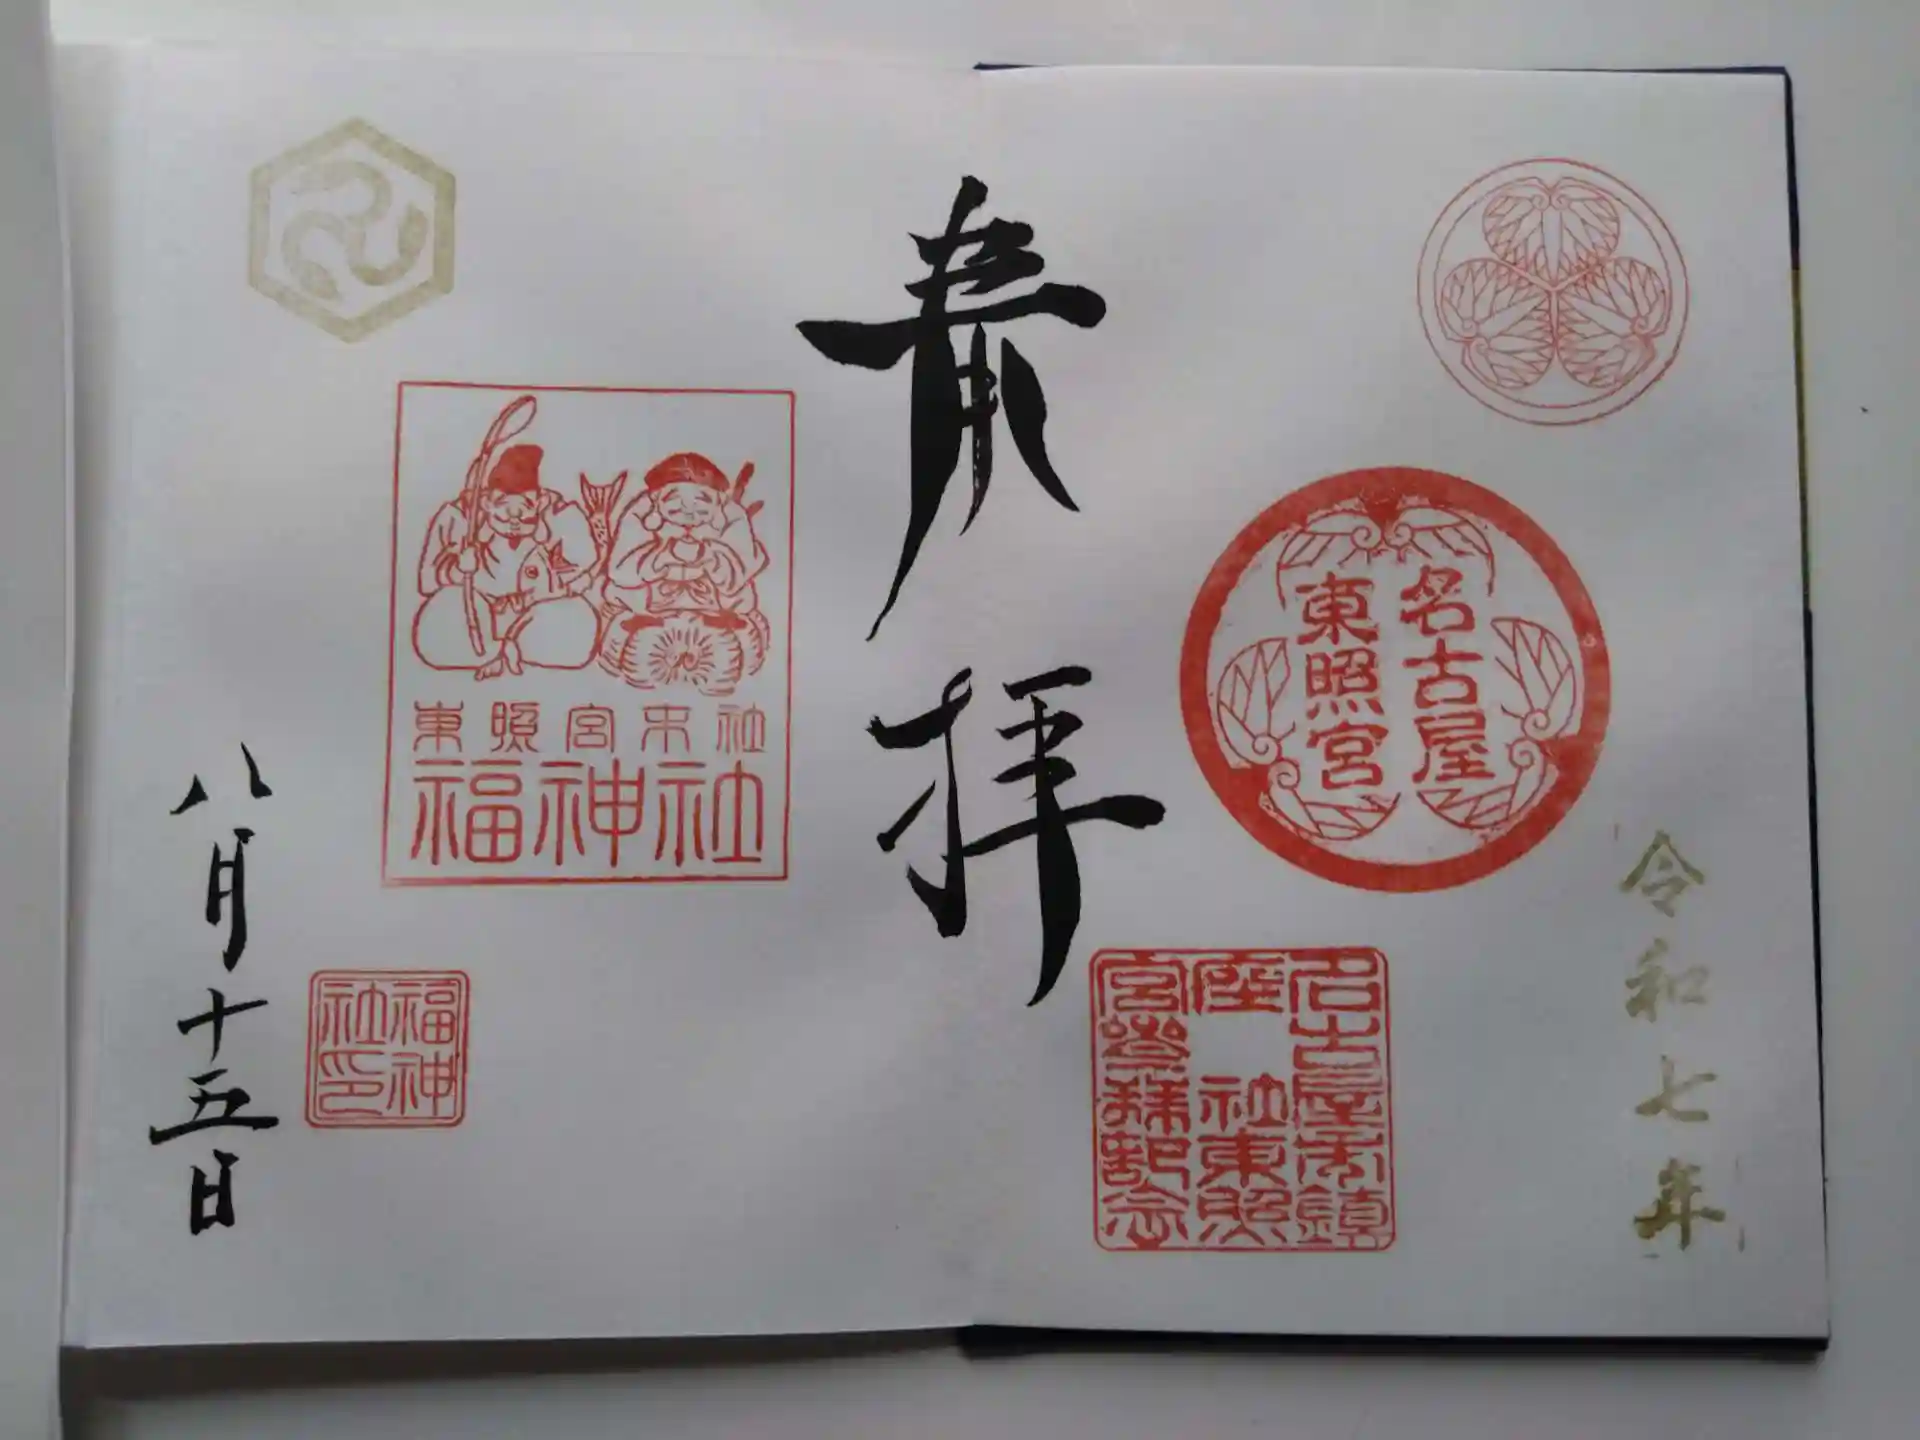 令和七年
名古屋
東照宮
名古屋市鎮
座社東照
宮參拜記念
奉拝
東照宮末社
福神社
福神
社印
八月十五日